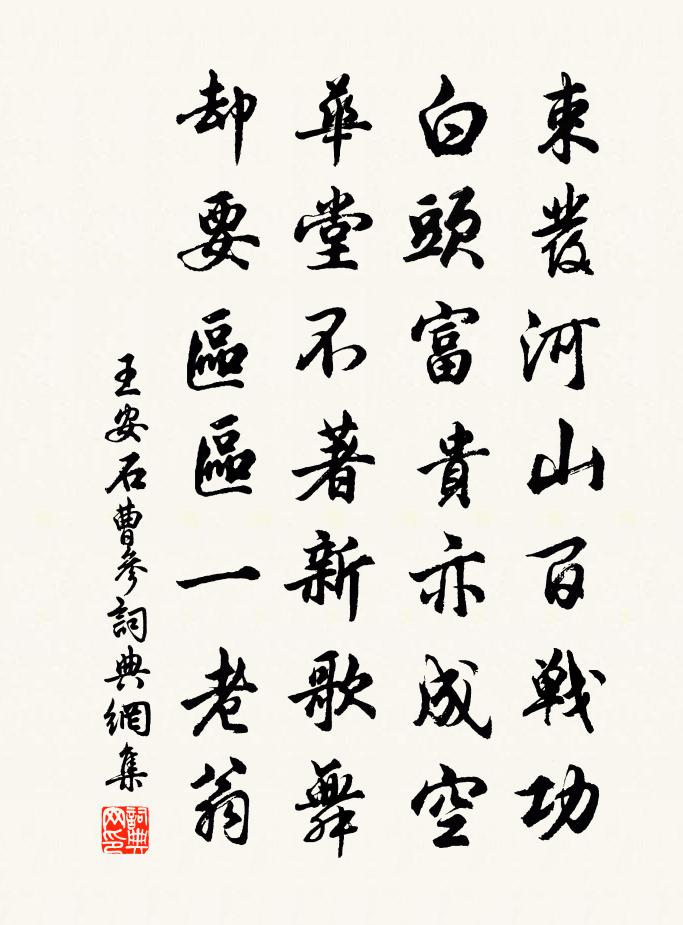 束發河山百戰功
白頭富貴亦成空
華堂不著新歌舞
却要區區一老翁
王安石曹參詞典網集
詞典
网印